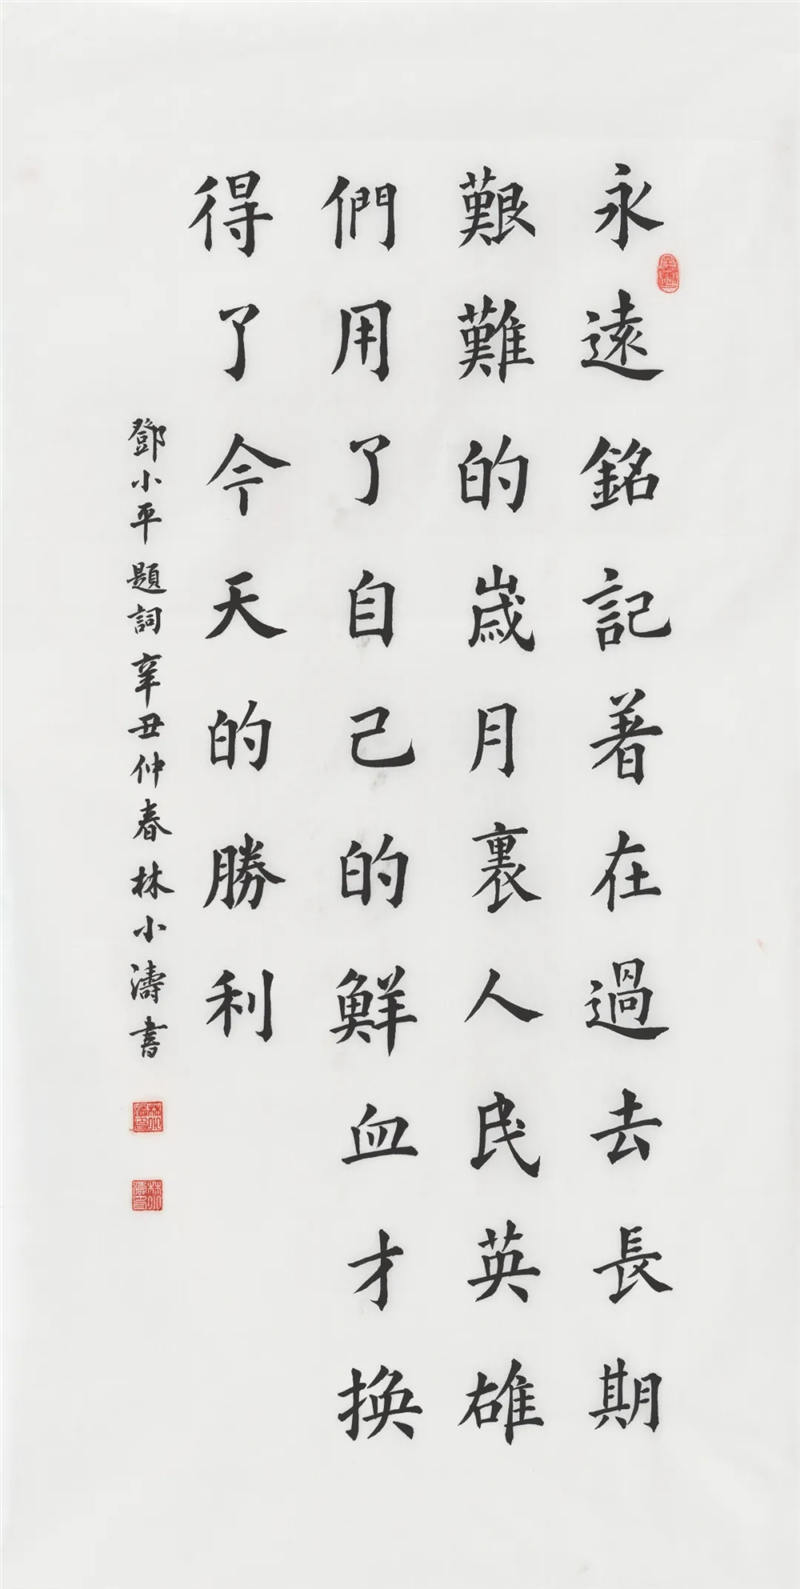 永遠銘記着在過去長期
艱難的歲月裏人民英雄
們用了自己的鮮血才換
得了今天的勝利
鄧小平題詞辛丑仲春林小濤書